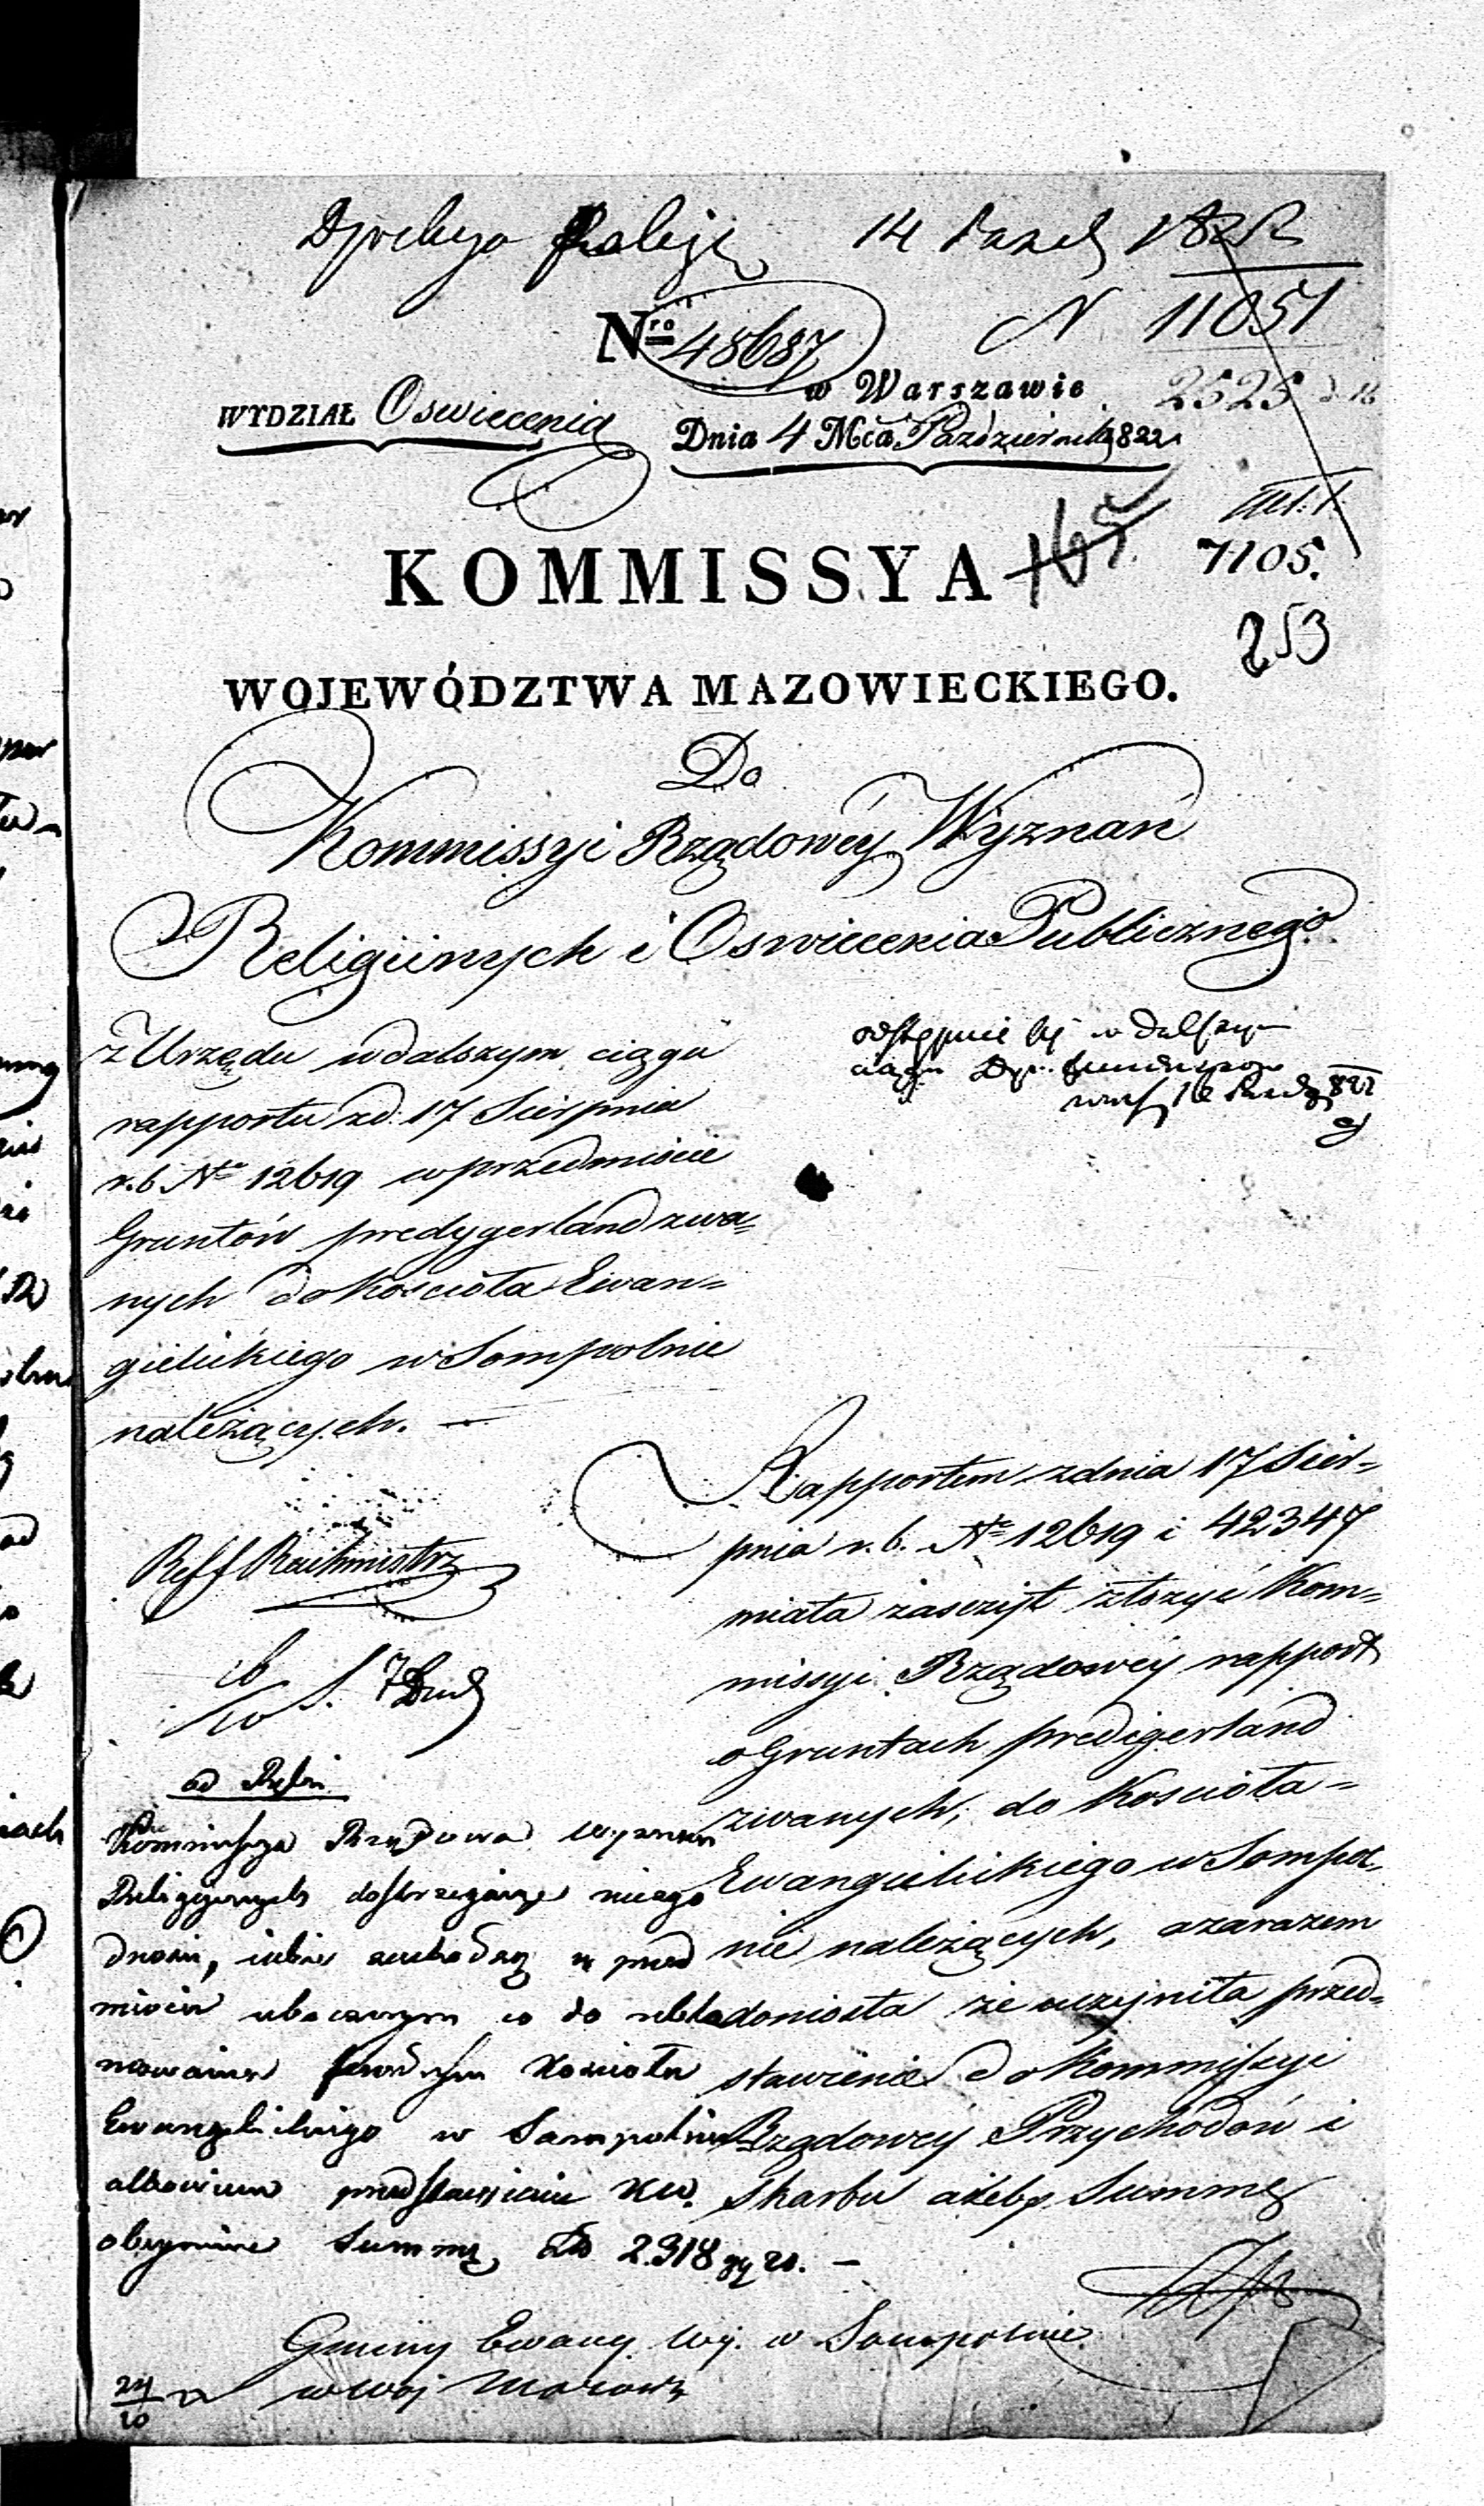 14 Pazd 1822
N 11051
Nro 48687
w Warszawie
2525
WYDZIAŁ Oswiecenia
Dnia 4 Mca Października 1822
165
7105.
KOMMISSYA
253
WOJEWÓDZTWA MAZOWIECKIEGO.
Do
Kommissyi Rządowéy Wyznań
Religiinych i Oswiecenia Publicznego
z Urzędu w dalszym ciągu
rapportu zd. 17 Sierpnia
r. b. No 12619 w przedmiocie
Gruntów predygerland zwa=
nych do Kościoła Ewan=
gielickiego w Sompolnie
należących. —
odstępuie się w dalszym
ciągu
822
Reff Rachmistrz
Rapportem z dnia 17 Sier=
pnia r. b. No 12619 i 42347
miała zaszczyt złożyć Kom=
missyi Rządowéy rapport
o Gruntach predigerland
zwanych, do Kościoła=
Ewangielickiego w Sompol=
nie należących, a zarazem
doniosła że uczyniła przed=
stawienie do Kommissyi
Rządowéy Przychodów i
Skarbu ażeby Summę
Kommissya Rządowa Wyznań
Religijnych dostrzegaiąc niezgo
dności, iakie zachodzą w przed
miocie ubocznym co do
funduszu Kościoła
Ewangelickiego w Sompolnie
albowiem przedstawienie KW.
obeymuie Summę 2.318 gr 20. —
Gminy Ewang. Wy. w Sompolnie
w Woj Mazow
24
10